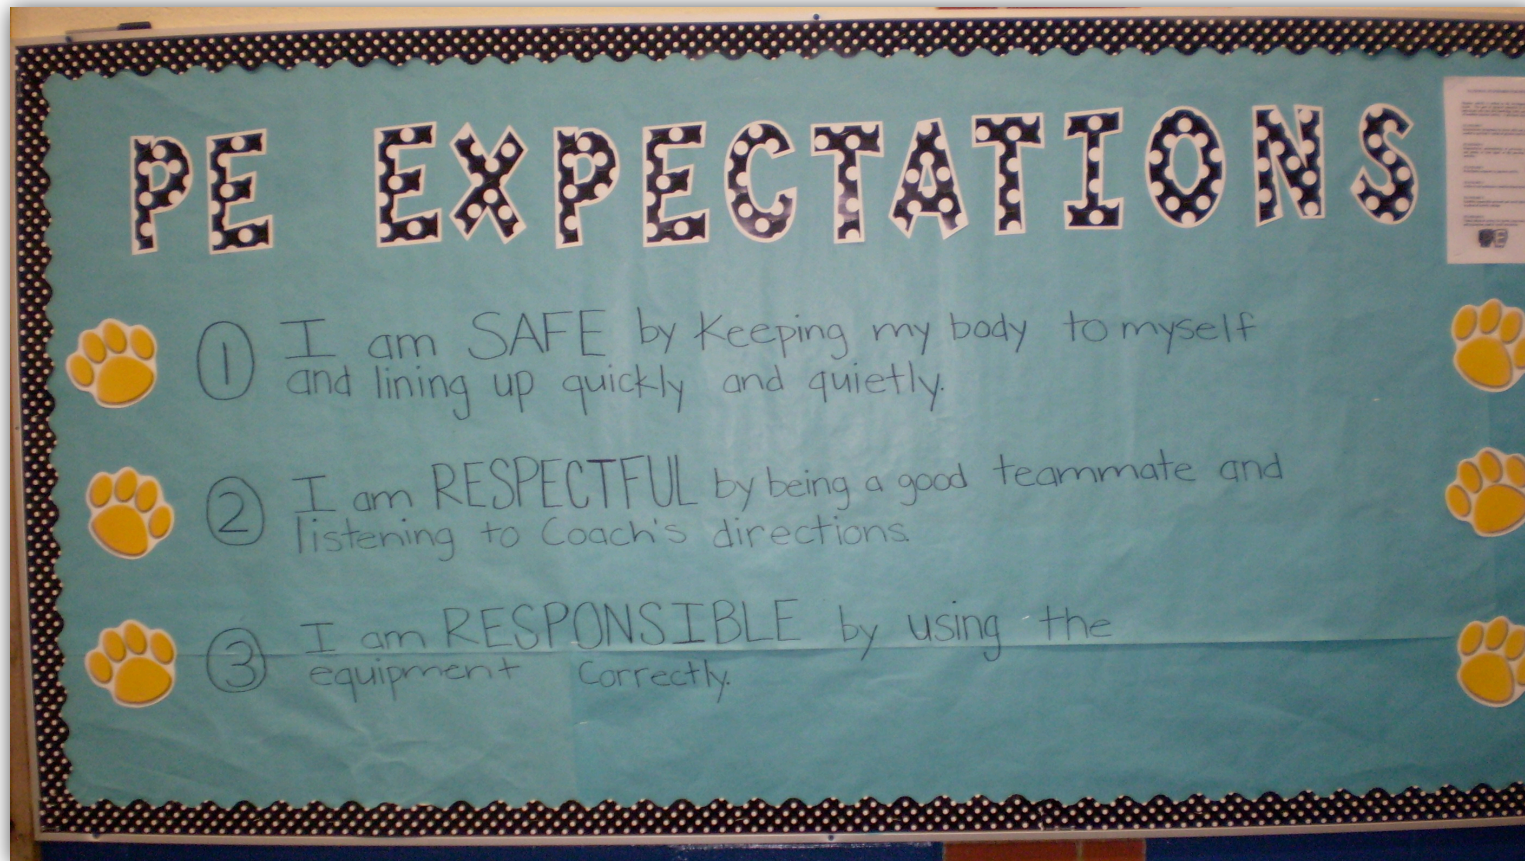 PE EXPECTATIONS
1 I am SAFE by keeping my body to myself
and lining up quickly and quietly.
2 I am RESPECTFUL by being a good teammate and
listening to Coach's directions.
3 I am RESPONSIBLE by using the
equipment correctly.